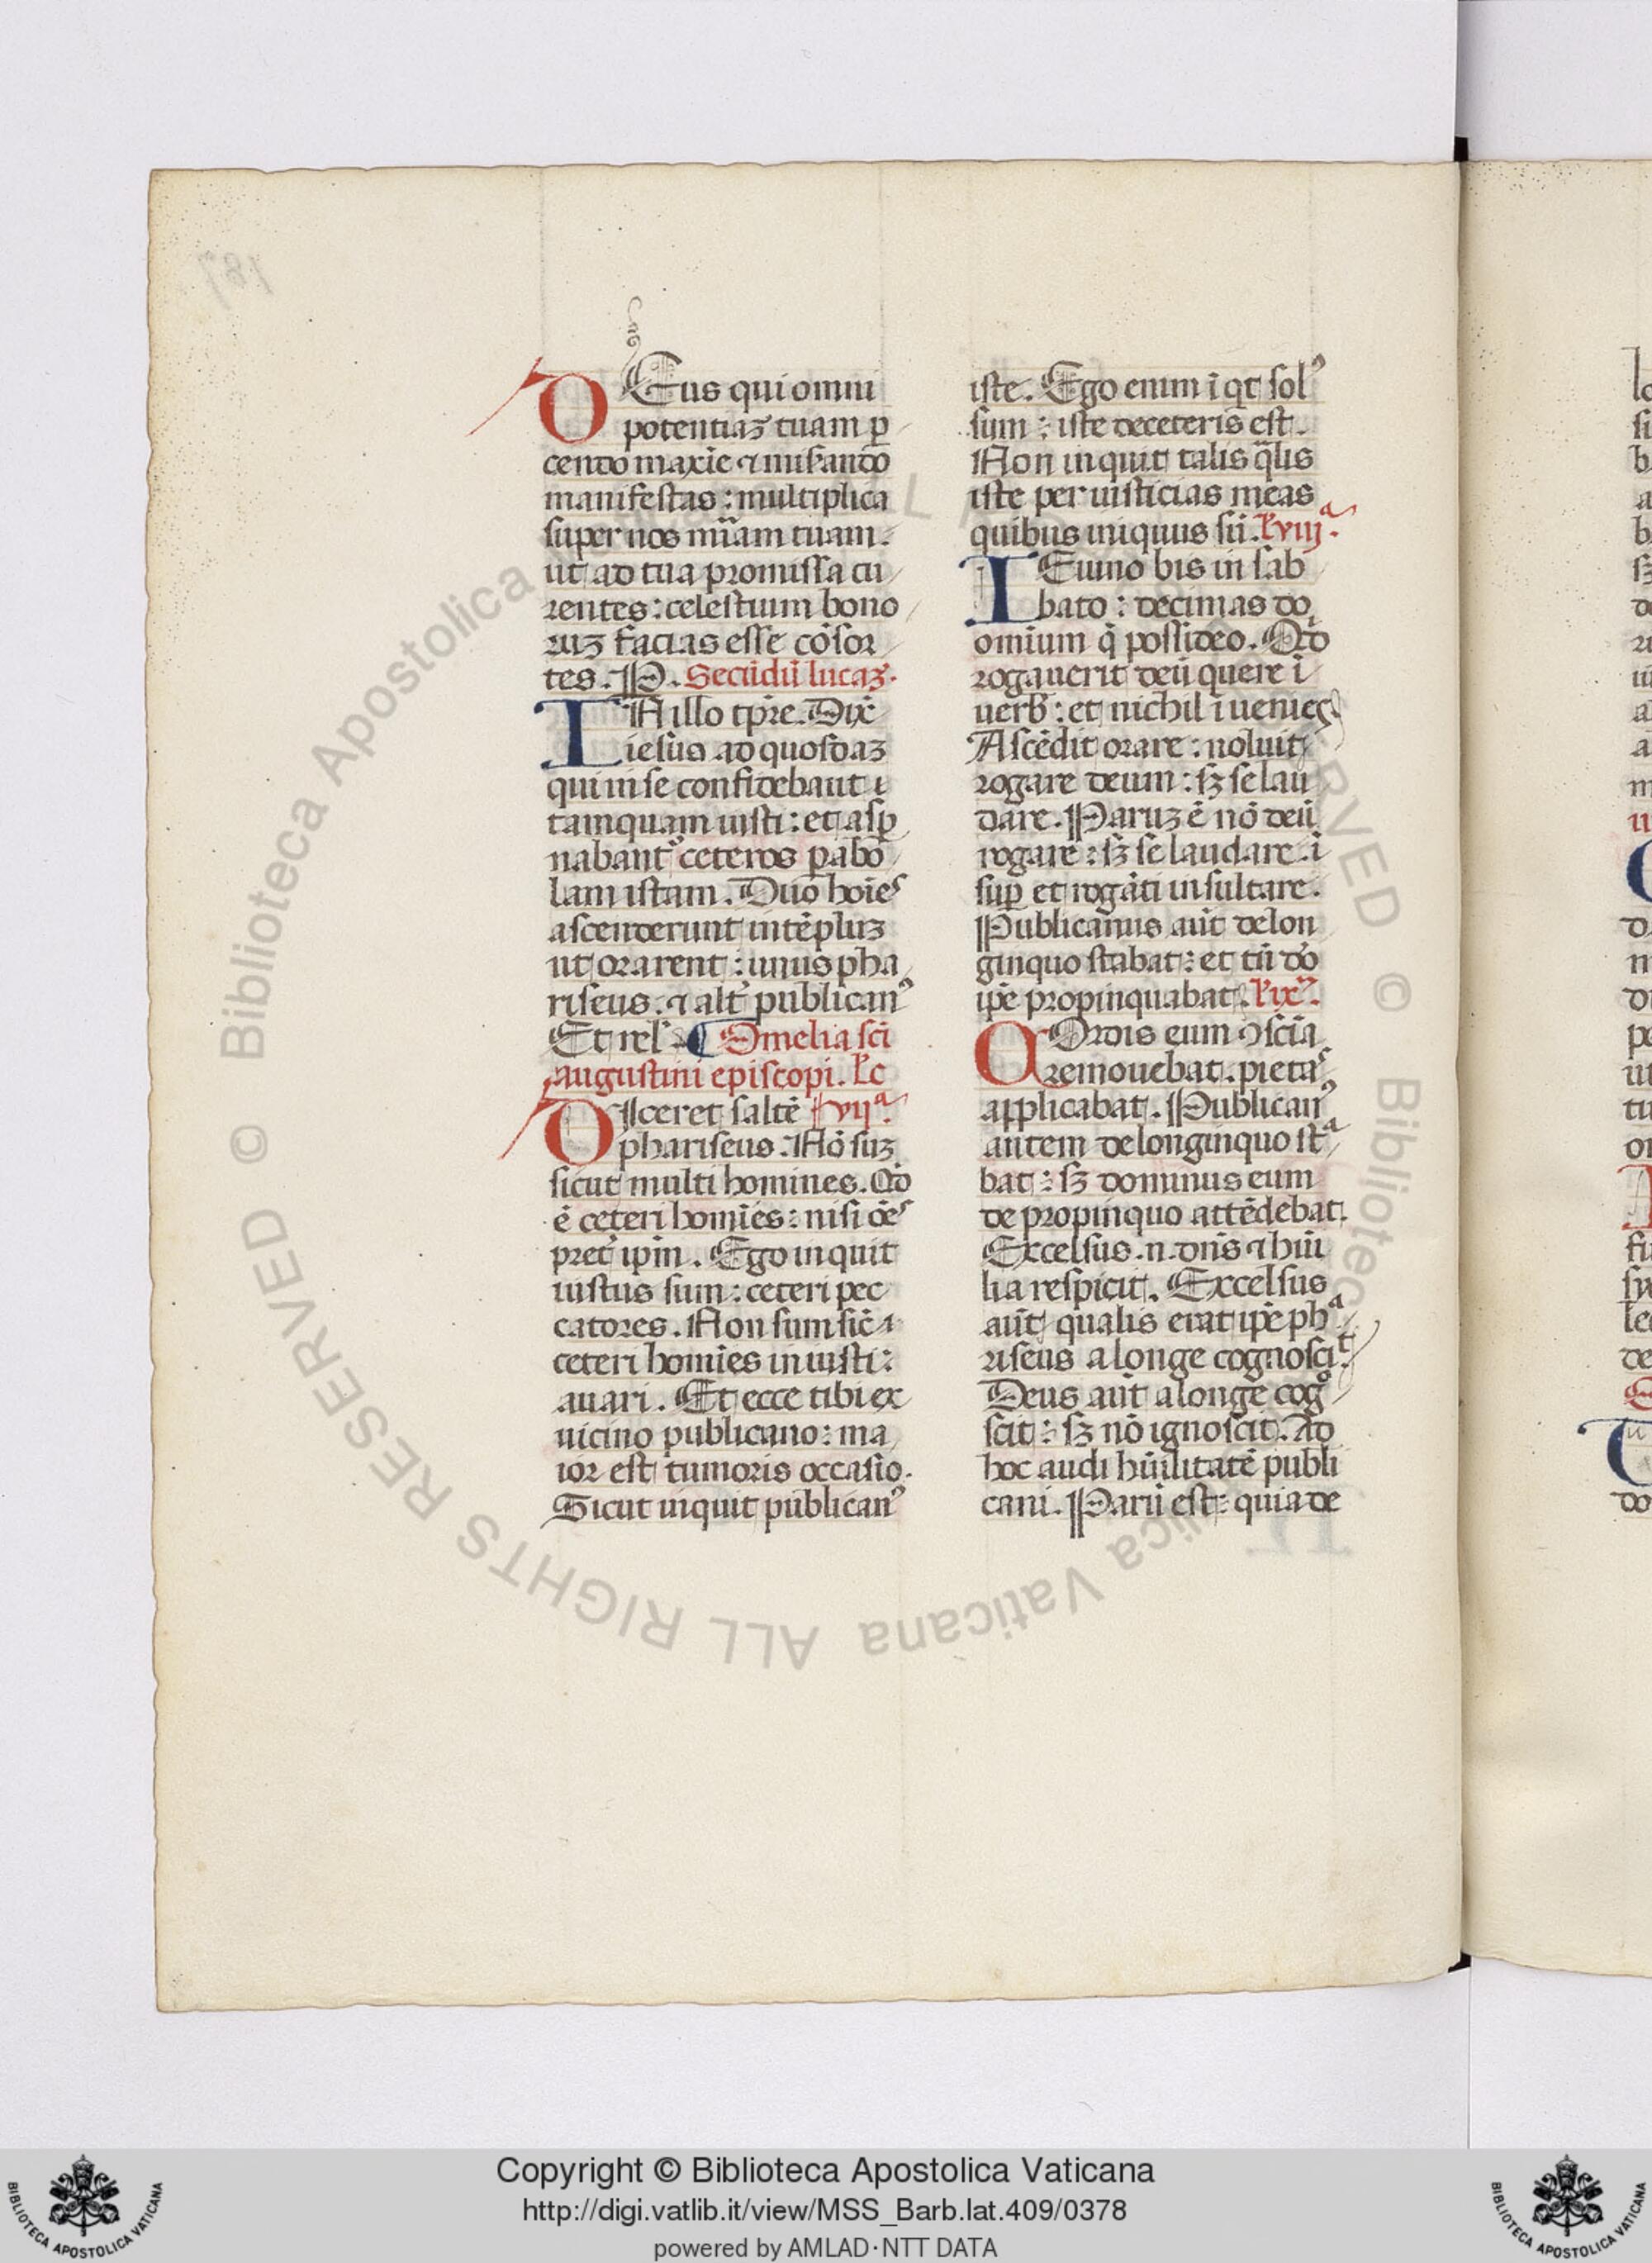 DEus qui omni
potentiaꝫ tuam ꝑ
cendo maxīe ⁊ misando
manifestas : multiplica
super nos mīam tuam.
ut ad tua promissa cu
rentes : celestium bono
ruꝫ facias esse cōsor
tes. P. Secūdū lucaꝫ.
IN illo tp̄re. Dix̄
iesus ad quosdaꝫ
qui in se confidebant
tamquam iusti : et asp̱
nabant᷑ ceteros ꝑabo
lam istam. Duo hoīes
ascenderunt in tēpluꝫ
ut orarent : unus pha
riseus ⁊ alt᷑ publicanꝰ
Et rel. ¶ Omelia sc̄i
augustini episcopi. Lc̄
DIceret saltē vijᵃ.
phariseus. Nō suꝫ
sicut multi homines. Qd̄
ē ceteri homīes : nisi oēs
pret᷑ ip̄m. Ego inquit
iustus sum : ceteri pec
catores. Non sum sic̄
ceteri homīes iniusti :
auari. Et ecce tibi ex
uicino publicano : ma
ior est tumoris occasio.
Sicut inquit publicanꝰ
iste. Ego enim īqt solꝰ
sum : iste de ceteris est.
Non inquit talis q̄lis
iste per iusticias meas
quibus iniquus sū. l'viijᵃ.
IEiuno bis in sab
bato : decimas do
omīum q̄ possideo. Qd̄
rogauerit deū quere ī
uerb : et nichil īuenies
Ascēdit orare : noluit
rogare deum : sꝫ se lau
dare. Paruꝫ ē nō deū
rogare : sꝫ se laudare. ī
suꝑ et rogāti insultare.
Publicanus aūt de lon
ginquo stabat : et tn̄ dō
ip̄e propinquabat. l'ixᵃ.
COrdis eum ↄscīa
remouebat. pietas
applicabat. Publicanꝰ
autem de longinquo stᵃ
bat : sꝫ dominus eum
de propinquo attēdebat.
Excelsus .n. dn̄s ⁊ hūi
lia respicit. Excelsus
aūt qualis erat ip̄e phᵃ
riseus a longe cognoscit.
Deus aūt a longe cogᵒ
scit : sꝫ nō ignoscit. Ad
hoc audi hūilitatē publi
cani. Parū est : quia de
Copyright © Biblioteca Apostolica Vaticana
http://digi.vatlib.it/view/MSS_Barb.lat.409/0378
powered by AMLAD·NTT DATA
© Biblioteca Apostolica Vaticana ALL RIGHTS RESERVED
BIBLIOTECA APOSTOLICA VATICANA
BIBLIOTECA APOSTOLICA VATICANA